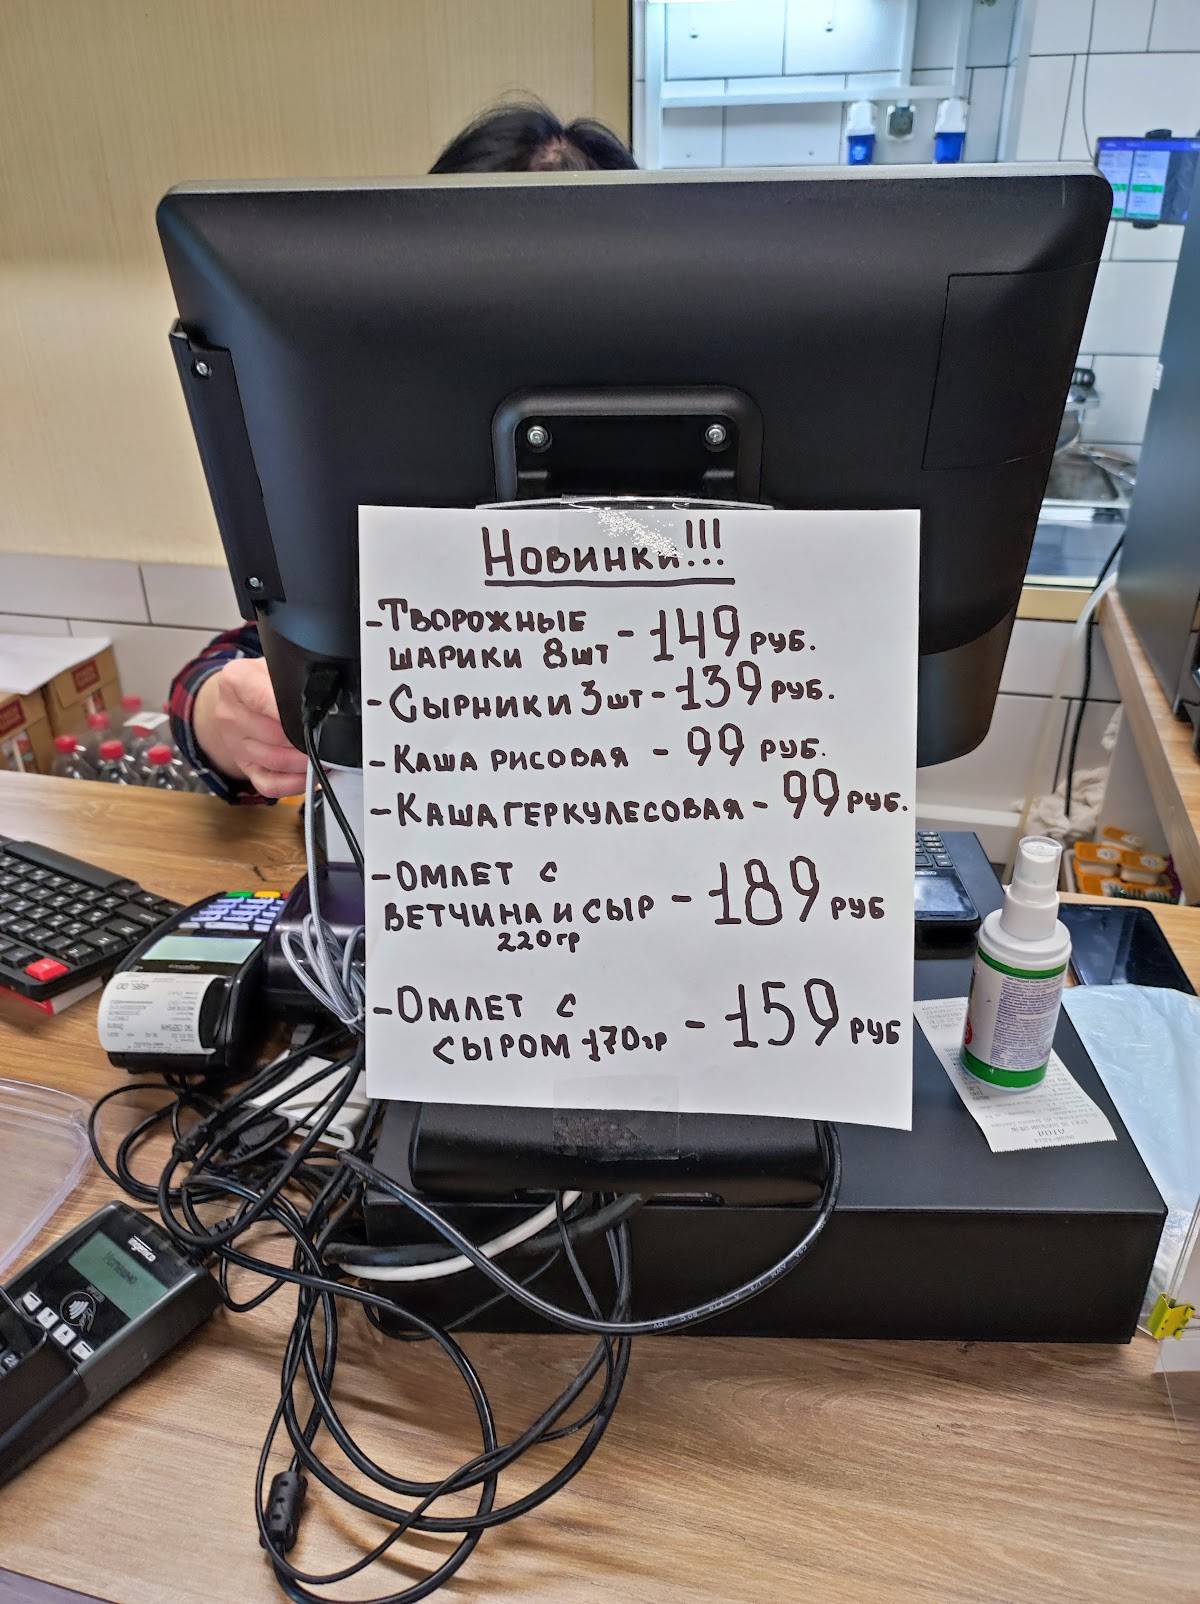 Новинки!!!
- Творожные
шарики 8шт - 149 руб.
- Сырники 3шт - 139 руб.
- Каша рисовая - 99 руб.
- Каша геркулесовая - 99 руб.
- Омлет с
ветчина и сыр - 189 руб
220гр
- Омлет с
сыром 170гр - 159 руб
ingenico
АТОЛ